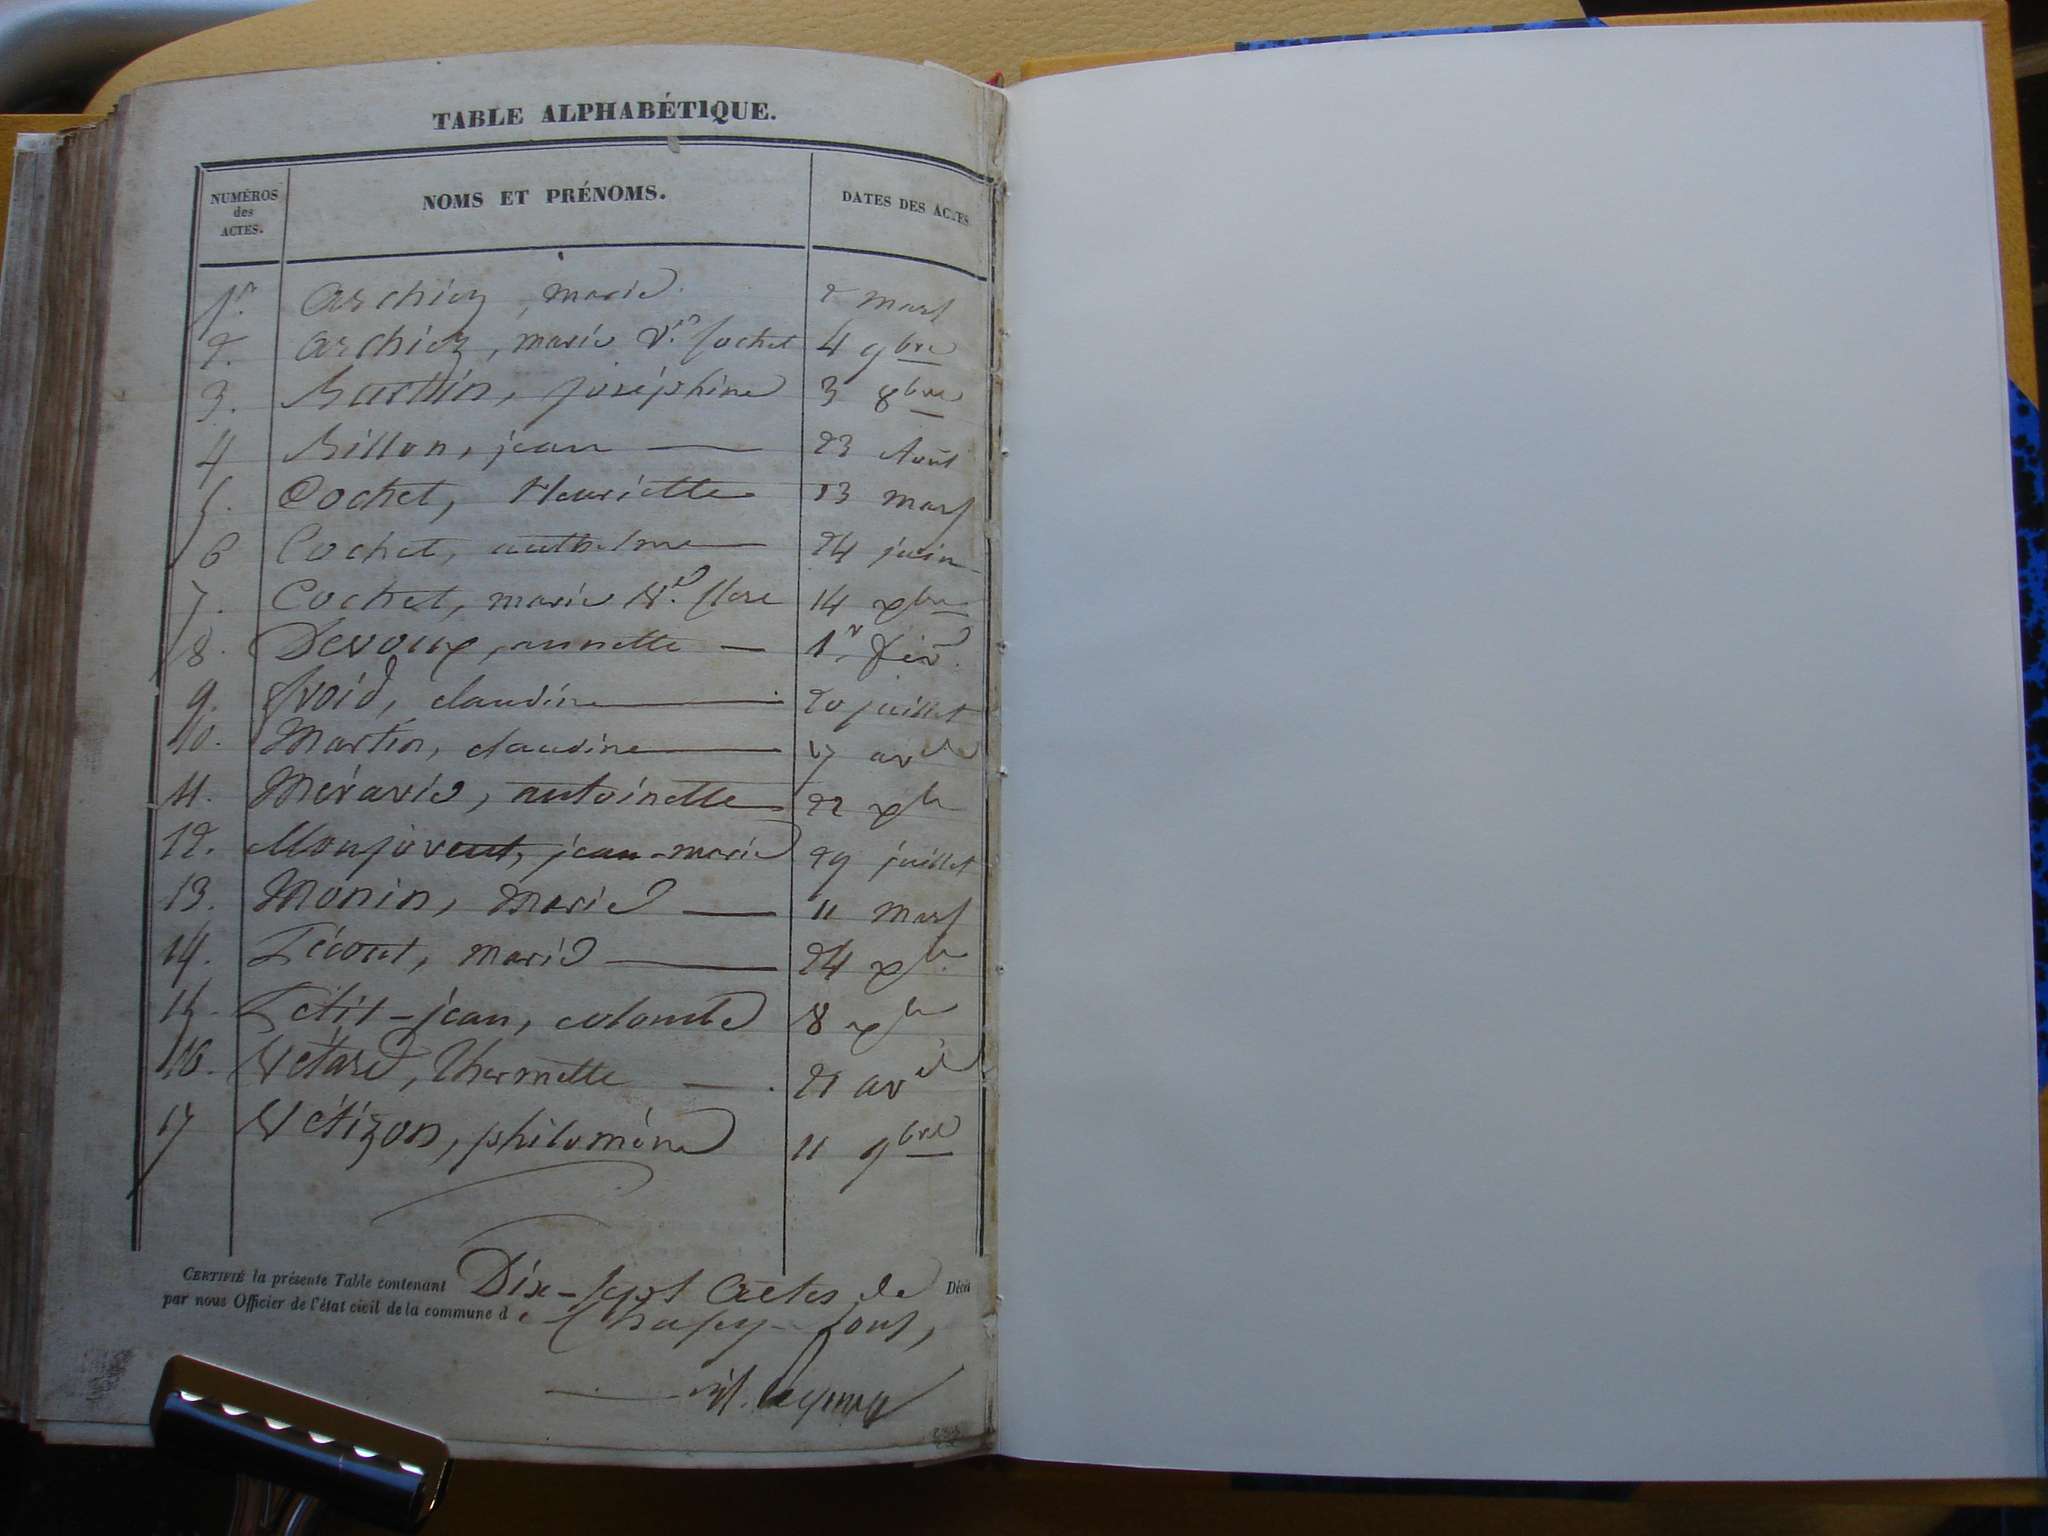 TABLE ALPHABÉTIQUE.
NUMÉROS des ACTES. NOMS ET PRÉNOMS. DATES DES ACTES
1er. archiez, marie. 2 mars
2. archiez, marie Ve. Cochet 4 9bre
3. Joséphine 3 8bre
4 Billon, jean — 23 Août
5. Cochet, Henriette 13 mars
6 Cochet, anthelme — 24 juin
7. Cochet, marie 14 xbre
8. Devoux, annette — 1er. fév.
9. froid, claudine — 20 juillet
10. Martin, claudine — 17 avil
11. Méravie, antoinette 22 xbr
12. Monjovent, jean-marie 29 juillet
13. Monin, Marie — 11 mars
14. Pécout, marie — 24 xbr.
15. Petit-jean, colombe 8 xbr
16. Vétard, — 21 avil
17 Vétizon, philomène 11 9bre
CERTIFIÉ la présente Table contenant Dix-sept actes de Décès
par nous Officier de l'état civil de la commune de